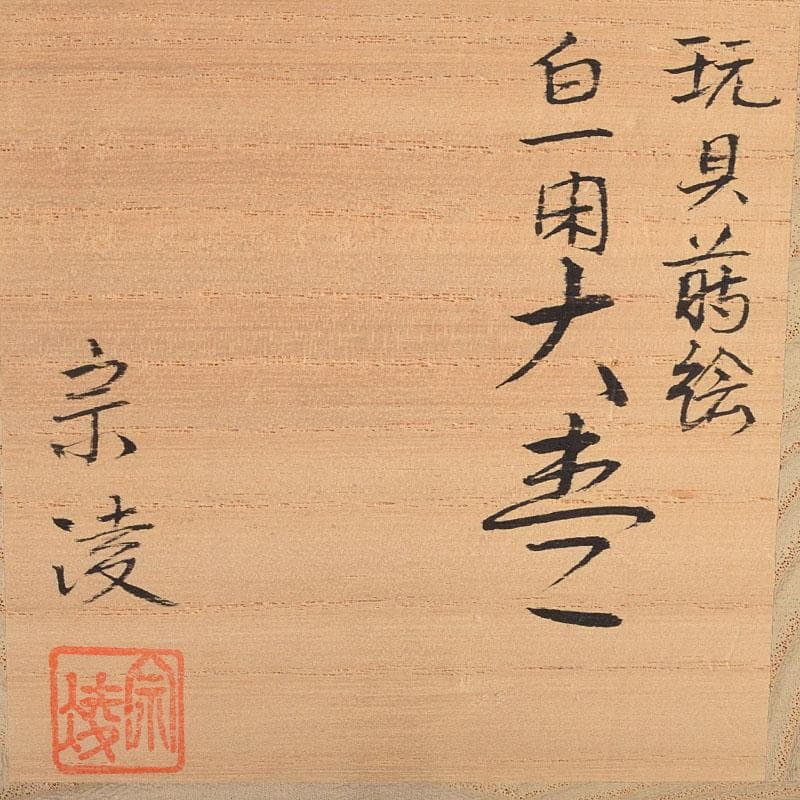 玩具蒔絵
白一閑大棗
宗凌
宗凌